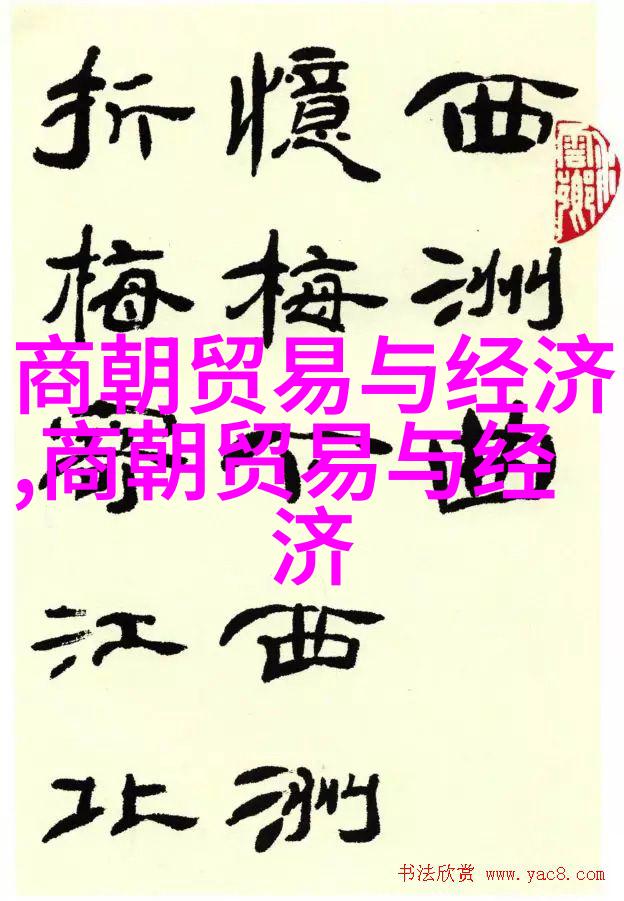 西洲曲
憶梅下西洲
折梅寄江北
商朝贸易与经济
,商朝贸易与经
济
书法欣赏 www.yac8.com